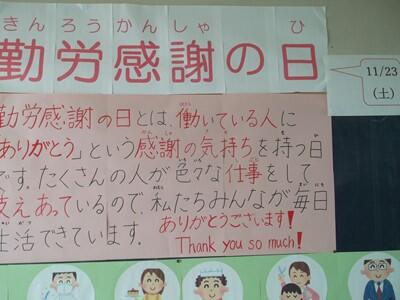 きんろうかんしゃ ひ
勤労感謝の日
11/23
(土)
勤労感謝の日とは、働いている人に
ありがとう」という感謝の気持ちを持つ日
です。たくさんの人が色々な仕事をして
支えあっているので、私たちみんなが毎日
生活できています。
ありがとうございます!
Thank you so much!